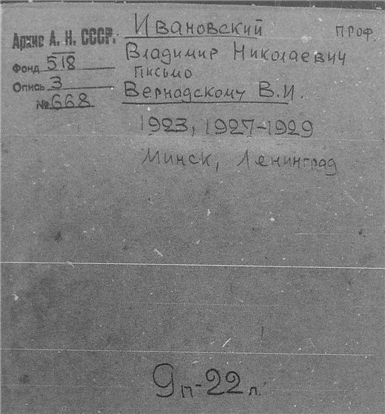 Ивановский проф.
Архив А. Н. СССР.
Владимир Николаевич
Фонд 518
письмо
Опись 3
Вернадскому В.И.
№ 668
1923, 1927-1929
Минск, Ленинград
9п-22л.